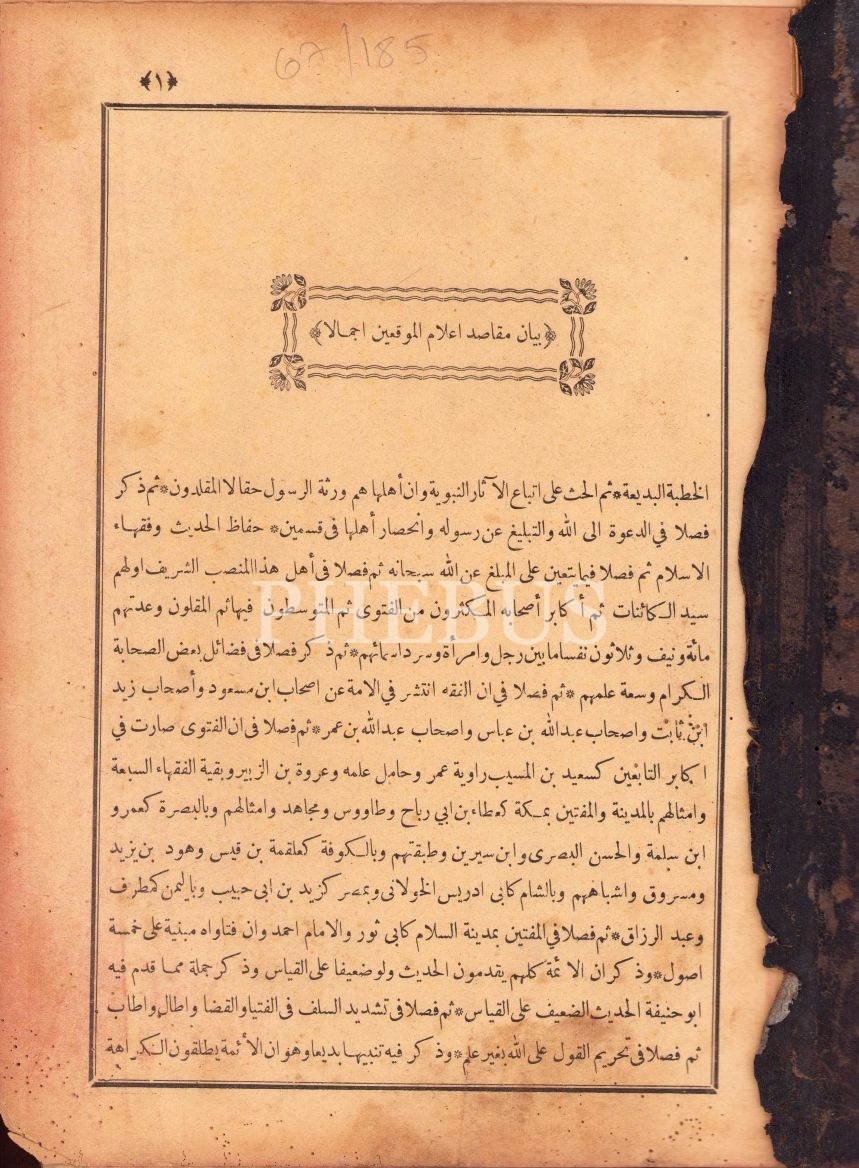 67/185
﴿١﴾
﴿بيان مقاصد اعلام الموقعين اجمالا﴾
الخطبة البديعة * ثم الحث على اتباع الآثار النبوية وان أهلها هم ورثة الرسول حقا لا المقلدون * ثم ذكر
فصلا في الدعوة الى الله والتبليغ عن رسوله وانحصار أهلها فى قسمين * حفاظ الحديث وفقهاء
الاسلام ثم فصلا فيما يتعين على المبلغ عن الله سبحانه ثم فصلا فى أهل هذا المنصب الشريف اولهم
سيد الكائنات ثم أكابر أصحابه المكثرون من الفتوى ثم المتوسطون فيها ثم المقلون وعدتهم
مائة ونيف وثلاثون نفسا ما بين رجل وامرأة وسرد اسمائهم * ثم ذكر فصلا فى فضائل بعض الصحابة
الكرام وسعة علمهم * ثم فصلا في ان الفقه انتشر في الامة عن اصحاب ابن مسعود وأصحاب زيد
ابن ثابت واصحاب عبدالله بن عباس واصحاب عبدالله بن عمر * ثم فصلا فى ان الفتوى صارت في
اكابر التابعين كسعيد بن المسيب راوية عمر وحامل علمه وعروة بن الزبير وبقية الفقهاء السبعة
وامثالهم بالمدينة والمفتين بمكة كعطاء بن ابي رباح وطاووس ومجاهد وامثالهم وبالبصرة كعمرو
ابن سلمة والحسن البصرى وابن سيرين وطبقتهم وبالكوفة كعلقمة بن قيس وهود بن يزيد
ومسروق واشباههم وبالشام كابى ادريس الخولانى وبمصر كزيد بن ابى حبيب وباليمن كمطرف
وعبد الرزاق * ثم فصلا في المفتين بمدينة السلام كابى ثور والامام احمد وان فتاواه مبنية على خمسة
اصول * وذكر ان الائمة كلهم يقدمون الحديث ولو ضعيفا على القياس وذكر جملة مما قدم فيه
ابو حنيفة الحديث الضعيف على القياس * ثم فصلا فى تشديد السلف فى الفتيا والقضا واطال واطاب
ثم فصلا فى تحريم القول على الله بغير علم * وذكر فيه تنبيها بديعا وهو ان الأئمة يطلقون الكراهة
PHEBUS